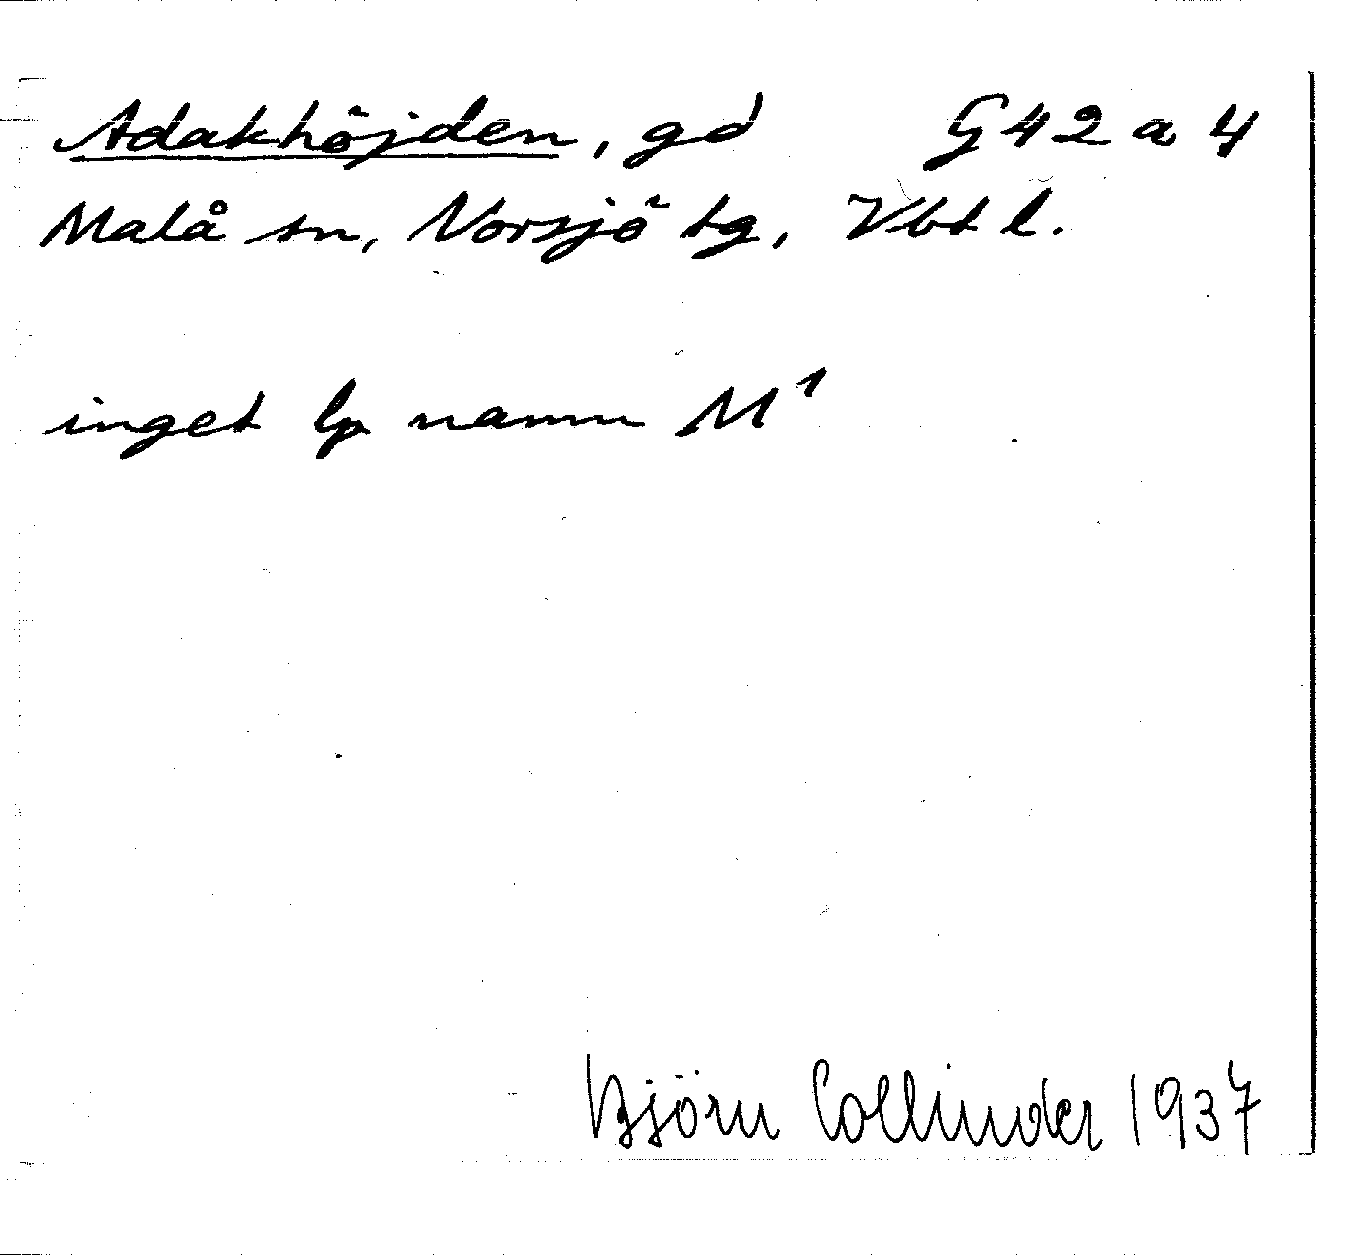 Adakhöjden, gd G 42 a 4
Malå sn, Norsjö tg, Vbt l.
inget lp namn M¹
Björn Collinder 1937